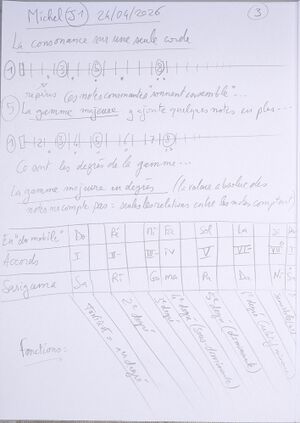 Michel (J1) 24/04/2026 (3)
La consonance sur une seule corde
1 3 5 8
repères (les notes communes sonnent "ensemble"...
5 La gamme majeure y ajoute quelques notes en plus...
1 (2) 3 4 5 6 7 8
Ce sont les degrés de la gamme...
La gamme majeure en degrés (la valeur absolue des
notes ne compte pas : seules les relatives entre les notes comptent)
En "do mobile" Do Ré Mi Fa Sol La Si
Accords I II III IV V VI
Sarigama Sa Ri Ga ma Pa Da Ni Sa
Fonctions :
Tonique = 1er degré
2e degré
3e degré
4e degré (sous dominante)
5e degré (dominante)
6e degré